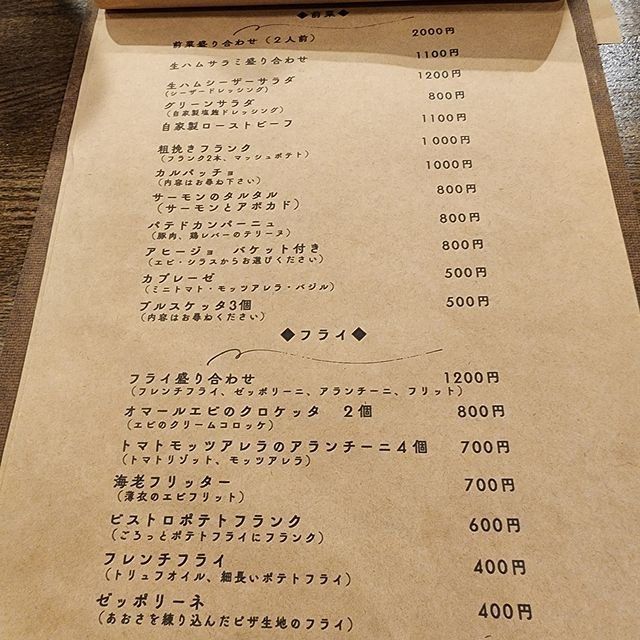 ◆前菜◆
前菜盛り合わせ（２人前） 2000円
生ハムサラミ盛り合わせ 1100円
生ハムシーザーサラダ 1200円
（シーザードレッシング）
グリーンサラダ 800円
（自家製塩麹ドレッシング）
自家製ローストビーフ 1100円
粗挽きフランク 1000円
（フランク2本、マッシュポテト）
カルパッチョ 1000円
（内容はお尋ね下さい）
サーモンのタルタル 800円
（サーモンとアボカド）
パテドカンパーニュ 800円
（豚肉、鶏レバーのテリーヌ）
アヒージョ　バケット付き 800円
（エビ・シラスからお選びください）
カプレーゼ 500円
（ミニトマト・モッツアレラ・バジル）
ブルスケッタ3個 500円
（内容はお尋ねください）
◆フライ◆
フライ盛り合わせ 1200円
（フレンチフライ、ゼッポリーニ、アランチーニ、フリット）
オマールエビのクロケッタ　２個 800円
（エビのクリームコロッケ）
トマトモッツアレラのアランチーニ４個 700円
（トマトリゾット、モッツアレラ）
海老フリッター 700円
（薄衣のエビフリット）
ビストロポテトフランク 600円
（ごろっとポテトフライにフランク）
フレンチフライ 400円
（トリュフオイル、細長いポテトフライ）
ゼッポリーネ 400円
（あおさを練り込んだピザ生地のフライ）